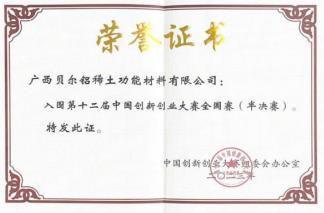 荣誉证书
广西贝尔铝稀土功能材料有限公司：
入围第十二届中国创新创业大赛全国赛（半决赛）。
特发此证。
中国创新创业大赛组委会办公室
二〇二三年